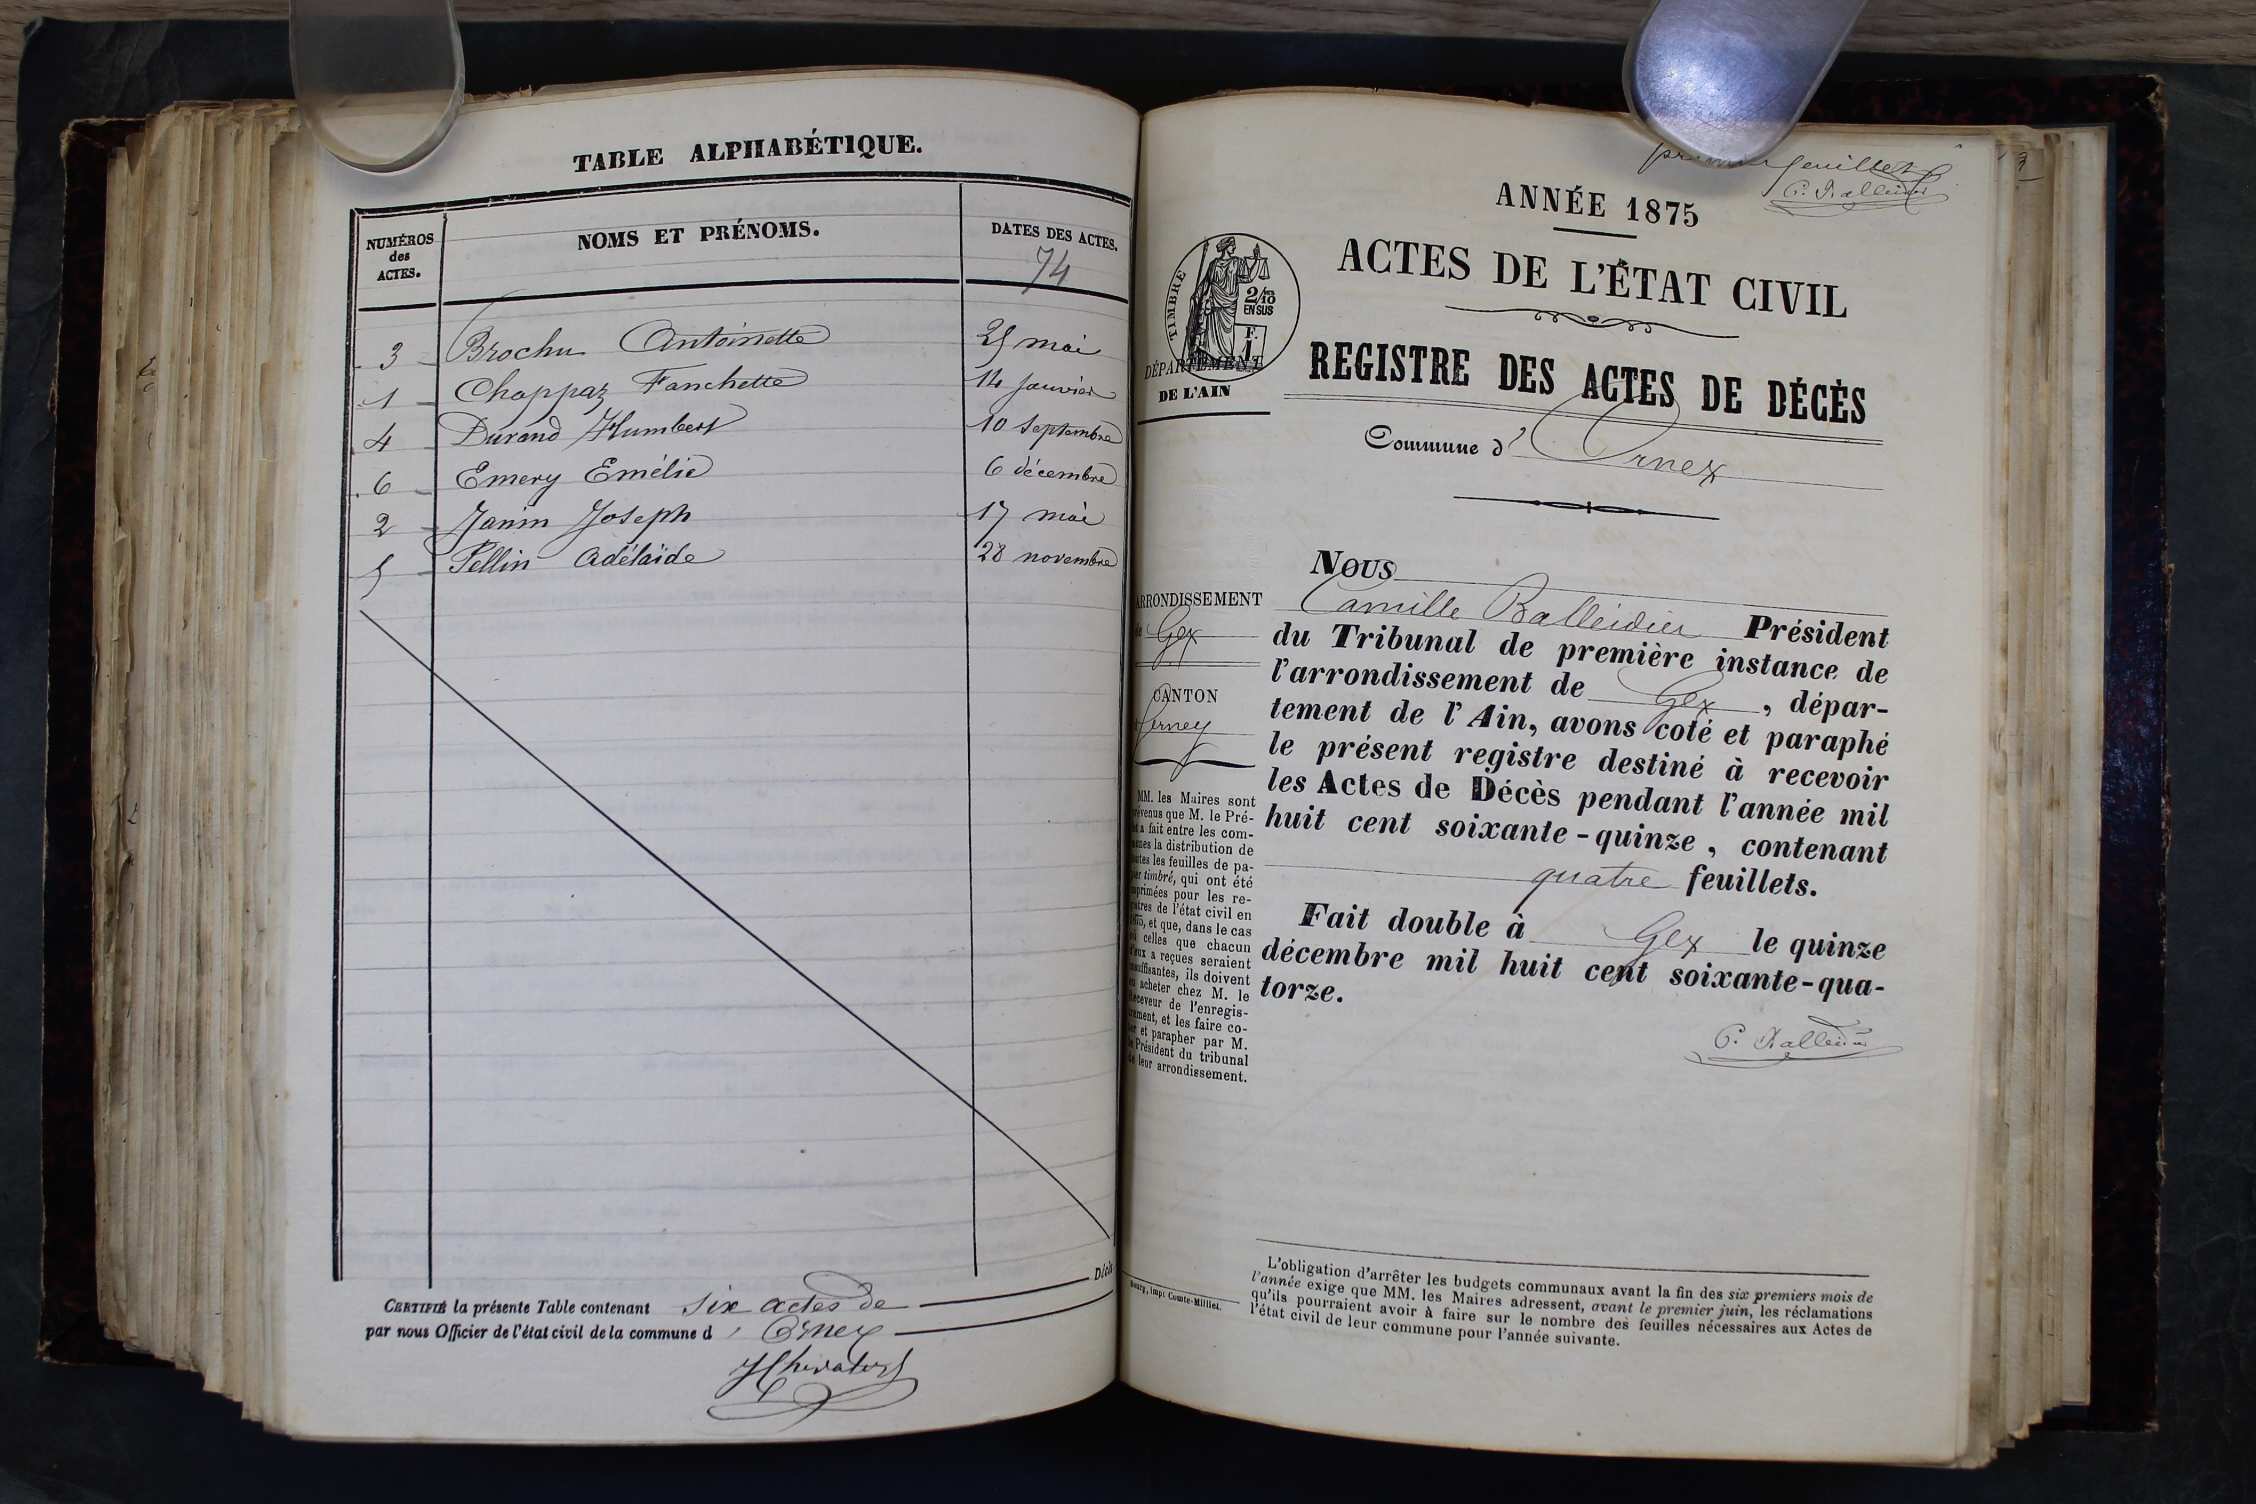 TABLE ALPHABÉTIQUE.
NUMÉROS des ACTES.
NOMS ET PRÉNOMS.
DATES DES ACTES.
74
3 Brochu Antoinette 25 mai
1 Chappaz Fanchette 14 Janvier
4 Durand Humbert 10 Septembre
6 Emery Emélie 6 décembre
2 Janin Joseph 17 mai
5 Pellin Adélaïde 28 novembre
CERTIFIÉ la présente Table contenant six actes de Décès
par nous Officier de l'état civil de la commune d' Ornex
premier feuillet
ANNÉE 1875
ACTES DE L'ÉTAT CIVIL
TIMBRE
2/10 EN SUS
DÉPARTEMENT
DE L'AIN
REGISTRE DES ACTES DE DÉCÈS
Commune d' Ornex
ARRONDISSEMENT
de Gex
CANTON
Ferney
MM. les Maires sont
prévenus que M. le Pré-
fet a fait entre les com-
munes la distribution de
toutes les feuilles de pa-
pier timbré, qui ont été
imprimées pour les re-
gistres de l'état civil en
1875, et que, dans le cas
où celles que chacun
d'eux a reçues seraient
insuffisantes, ils doivent
en acheter chez M. le
Receveur de l'enregis-
trement, et les faire co-
ter et parapher par M.
le Président du tribunal
de leur arrondissement.
Nous
Camille Balleidier Président
du Tribunal de première instance de
l'arrondissement de Gex, dépar-
tement de l'Ain, avons coté et paraphé
le présent registre destiné à recevoir
les Actes de Décès pendant l'année mil
huit cent soixante-quinze, contenant
quatre feuillets.
Fait double à Gex le quinze
décembre mil huit cent soixante-qua-
torze.
C. Balleidier
Bourg, imp. Comte-Milliet.
L'obligation d'arrêter les budgets communaux avant la fin des six premiers mois de
l'année exige que MM. les Maires adressent, avant le premier juin, les réclamations
qu'ils pourraient avoir à faire sur le nombre des feuilles nécessaires aux Actes de
l'état civil de leur commune pour l'année suivante.